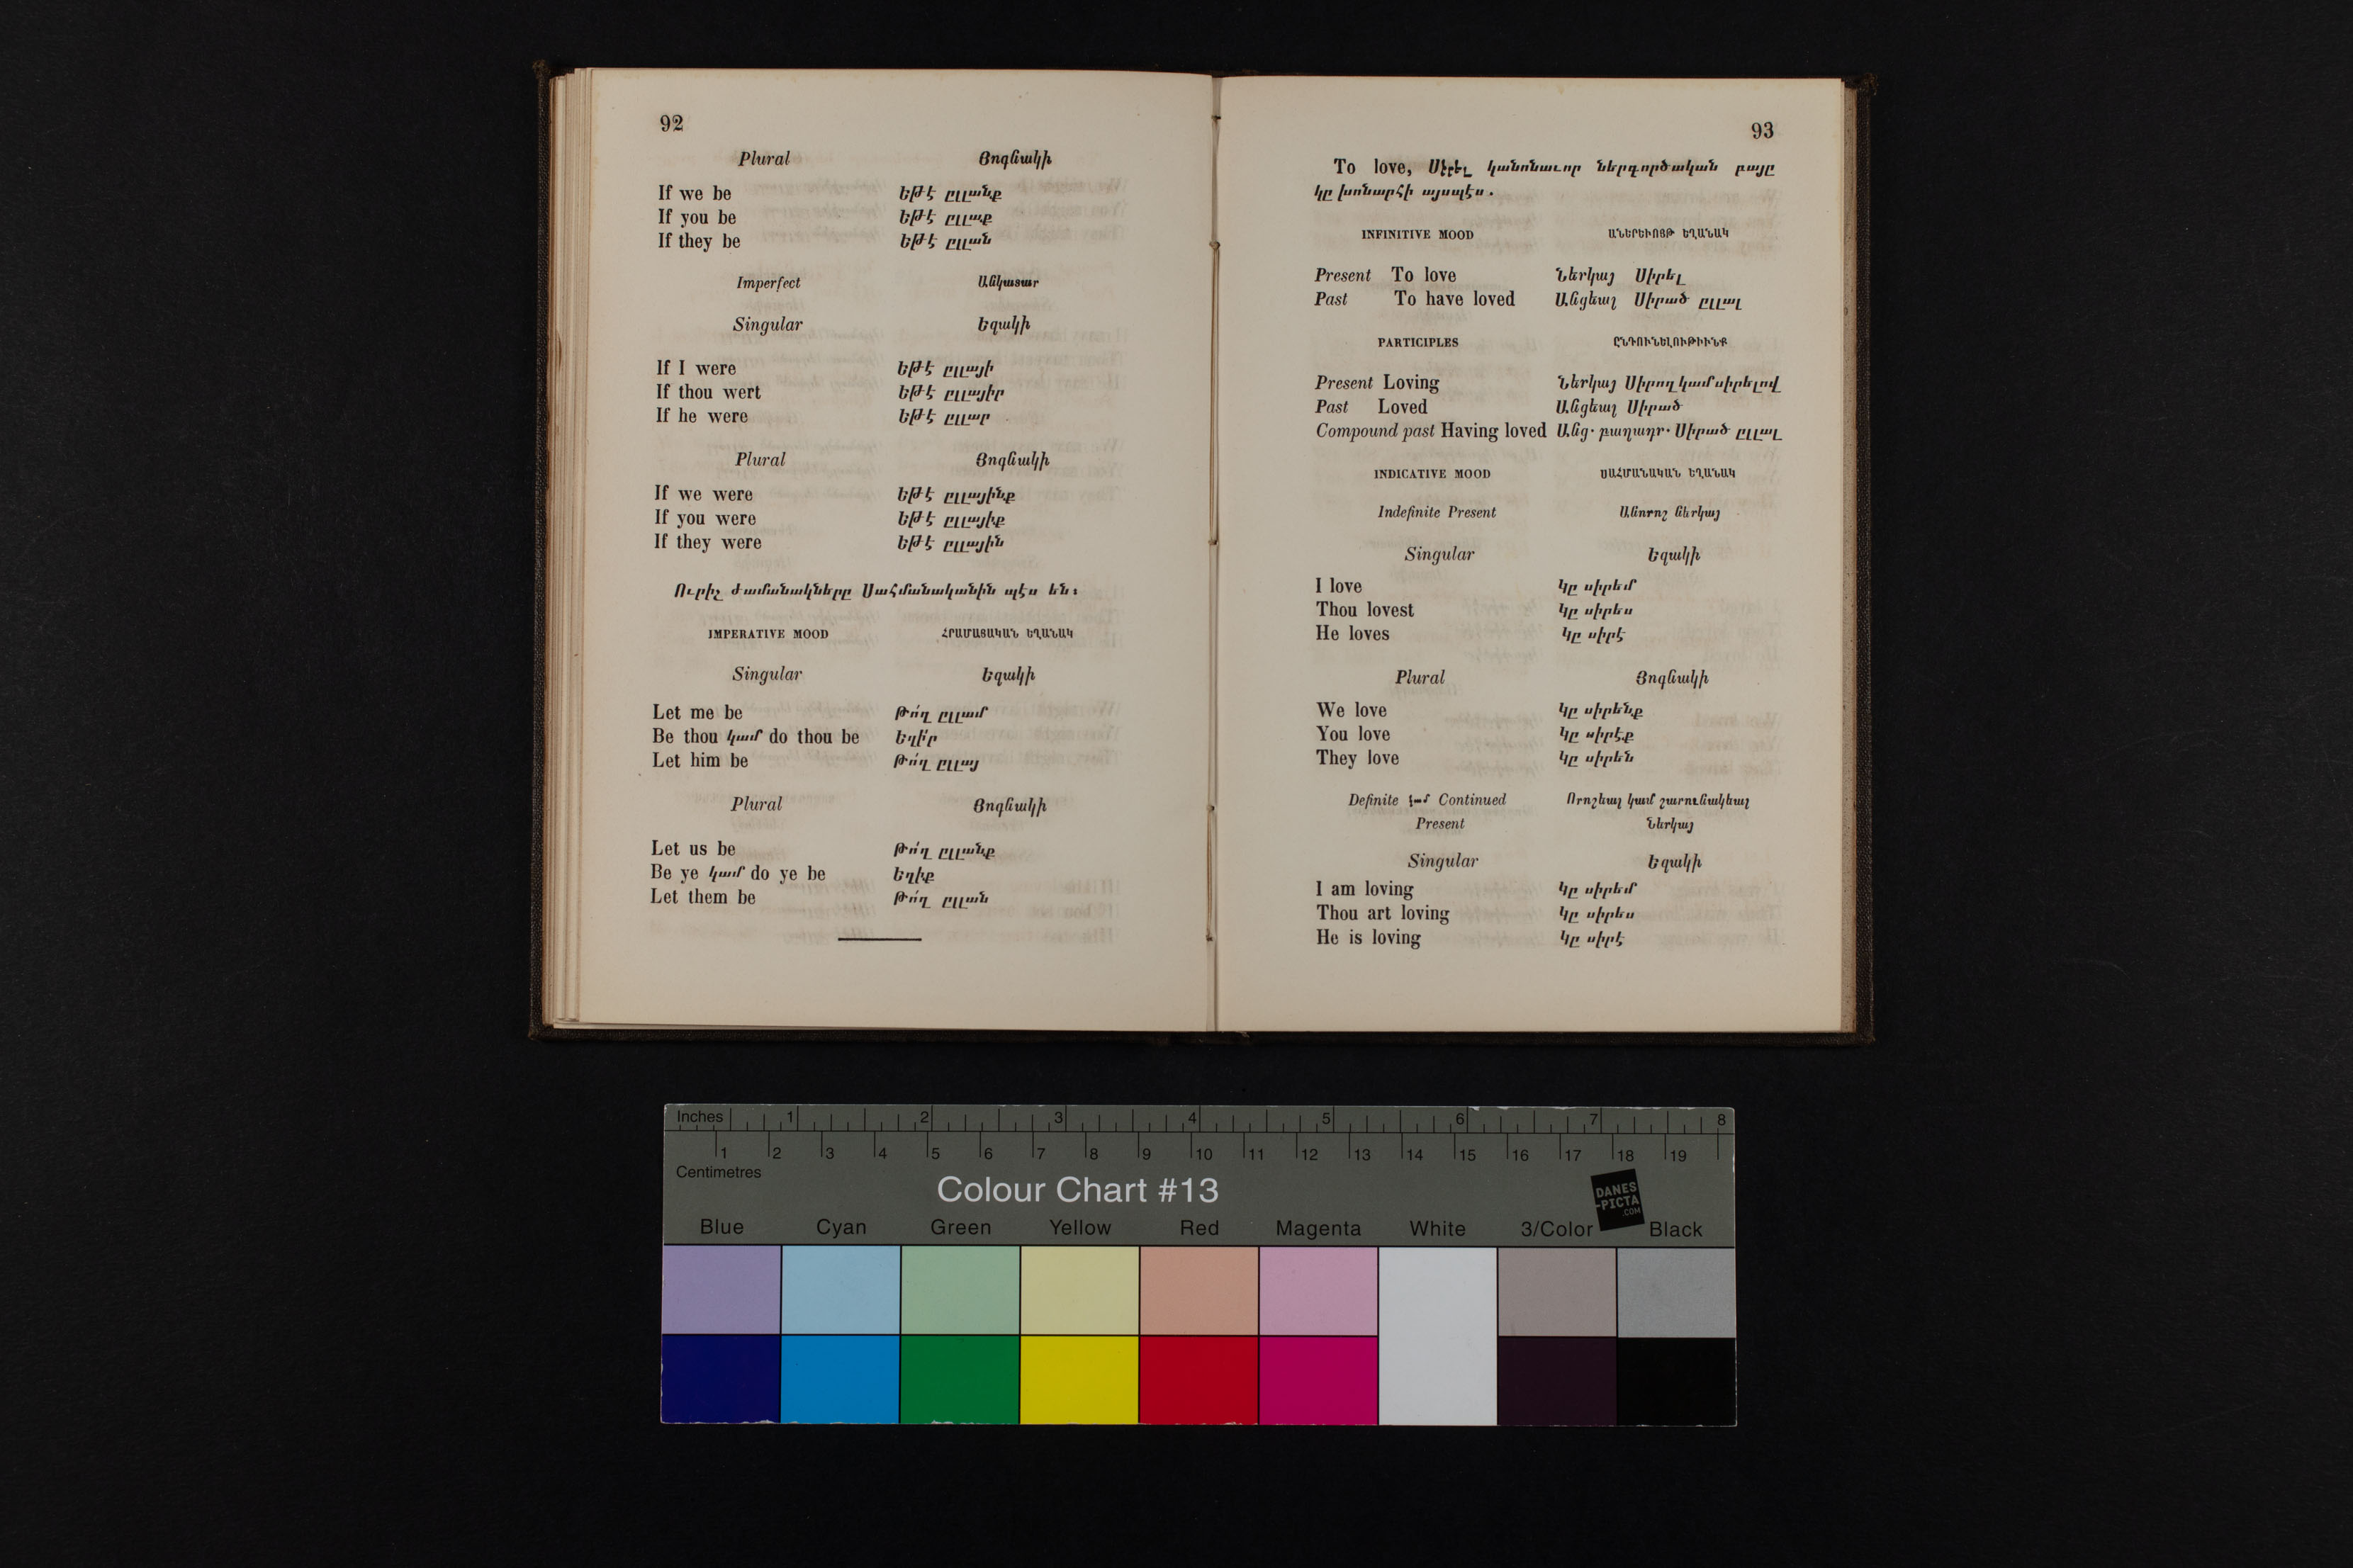 92
Plural Յոգնակի
If we be Եթէ ըլլանք
If you be Եթէ ըլլաք
If they be Եթէ ըլլան
Imperfect Անկատար
Singular Եզակի
If I were Եթէ ըլլայի
If thou wert Եթէ ըլլայիր
If he were Եթէ ըլլար
Plural Յոգնակի
If we were Եթէ ըլլայինք
If you were Եթէ ըլլայիք
If they were Եթէ ըլլային
Ուրիշ ժամանակները Սահմանականին պէս են։
IMPERATIVE MOOD ՀՐԱՄԱՅԱԿԱՆ ԵՂԱՆԱԿ
Singular Եզակի
Let me be Թո՛ղ ըլլամ
Be thou կամ do thou be Եղի՛ր
Let him be Թո՛ղ ըլլայ
Plural Յոգնակի
Let us be Թո՛ղ ըլլանք
Be ye կամ do ye be Եղիք
Let them be Թո՛ղ ըլլան
93
To love, Սիրել կանոնաւոր ներգործական բայը
կը խոնարհի այսպէս.
INFINITIVE MOOD ԱՆԵՐԵՒՈՅԹ ԵՂԱՆԱԿ
Present To love Ներկայ Սիրել
Past To have loved Անցեալ Սիրած ըլլալ
PARTICIPLES ԸՆԴՈՒՆԵԼՈՒԹԻՒՆՔ
Present Loving Ներկայ Սիրող կամ սիրելով
Past Loved Անցեալ Սիրած
Compound past Having loved Անց. բաղադր. Սիրած ըլլալ
INDICATIVE MOOD ՍԱՀՄԱՆԱԿԱՆ ԵՂԱՆԱԿ
Indefinite Present Անորոշ ներկայ
Singular Եզակի
I love Կը սիրեմ
Thou lovest Կը սիրես
He loves Կը սիրէ
Plural Յոգնակի
We love Կը սիրենք
You love Կը սիրէք
They love Կը սիրեն
Definite կամ Continued Որոշեալ կամ շարունակեալ
Present Ներկայ
Singular Եզակի
I am loving Կը սիրեմ
Thou art loving Կը սիրես
He is loving Կը սիրէ
Inches 1 2 3 4 5 6 7 8
1 2 3 4 5 6 7 8 9 10 11 12 13 14 15 16 17 18 19
Centimetres
Colour Chart #13
DANES
-PICTA
.COM
Blue Cyan Green Yellow Red Magenta White 3/Color Black